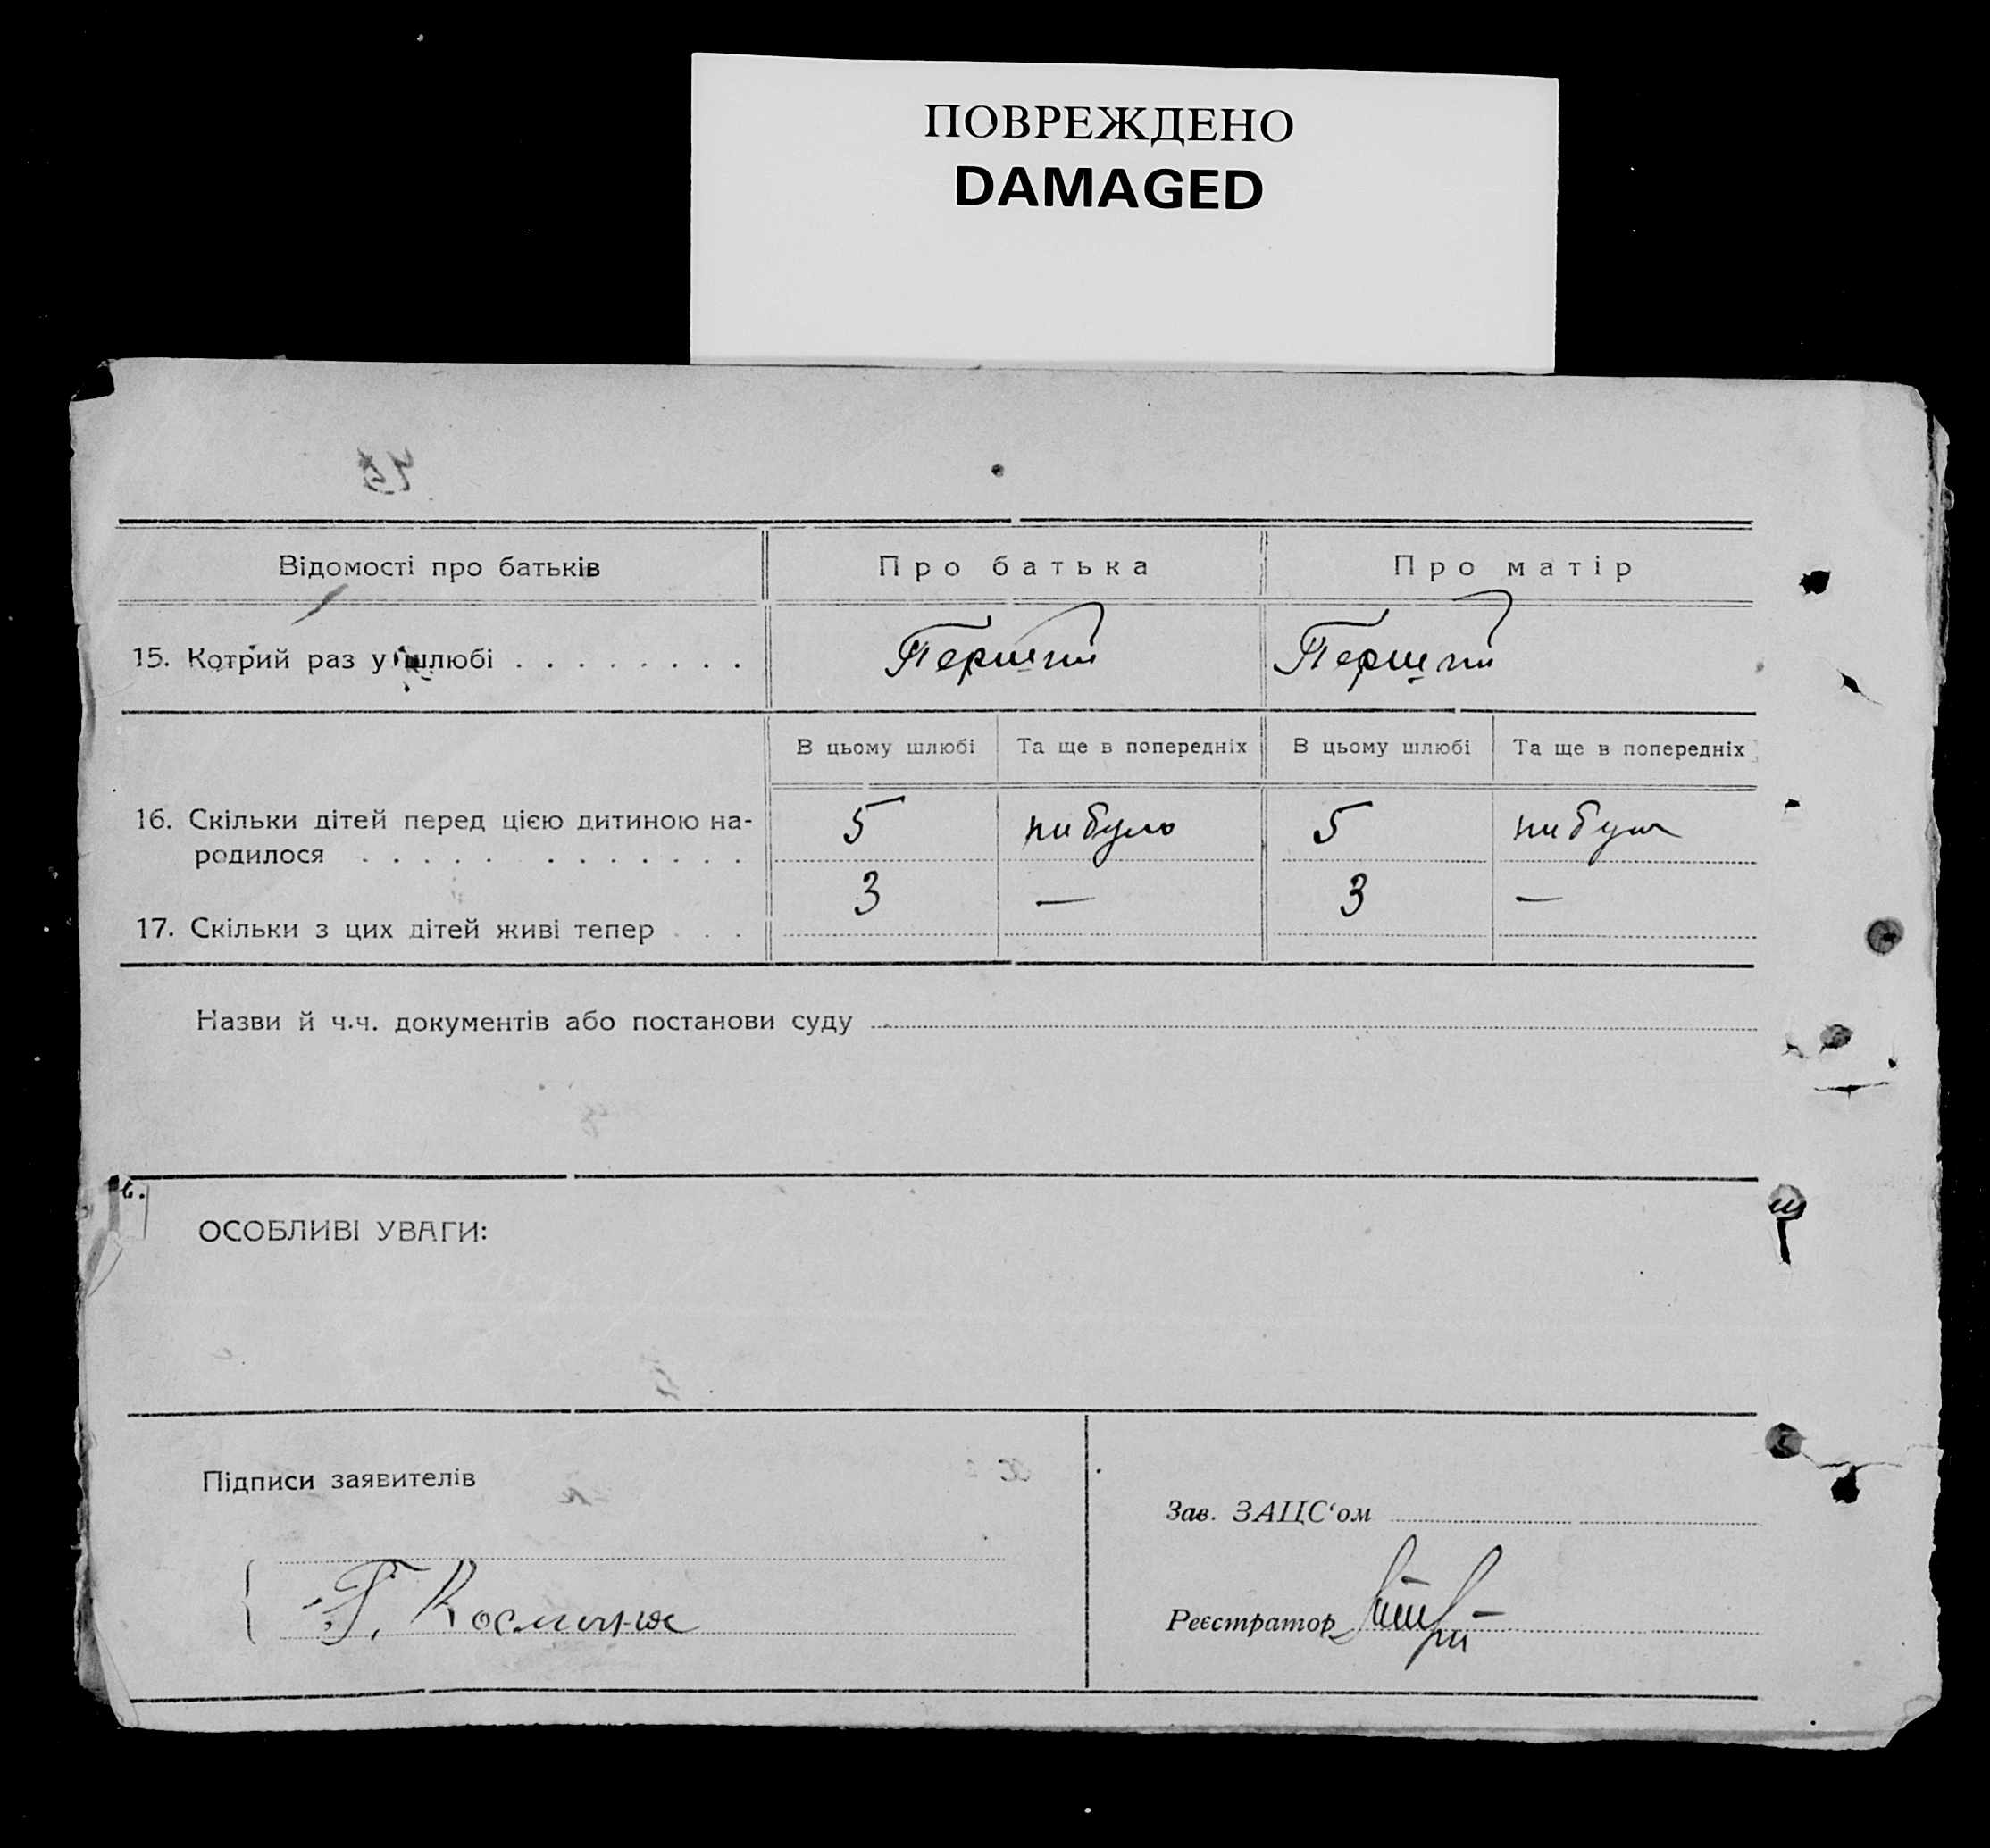 ПОВРЕЖДЕНО
DAMAGED
Відомості про батьків
Про батька
Про матір
15. Котрий раз у шлюбі . . . . . . . .
Перший
Перший
В цьому шлюбі
Та ще в попередніх
В цьому шлюбі
Та ще в попередніх
16. Скільки дітей перед цією дитиною на-
родилося . . . . . . . . . . . .
5
ни було
5
ни було
17. Скільки з цих дітей живі тепер . . .
3
—
3
—
Назви й ч.ч. документів або постанови суду
ОСОБЛИВІ УВАГИ:
Підписи заявителів
Г.
Зав. ЗАЦС‘ом
Реєстратор